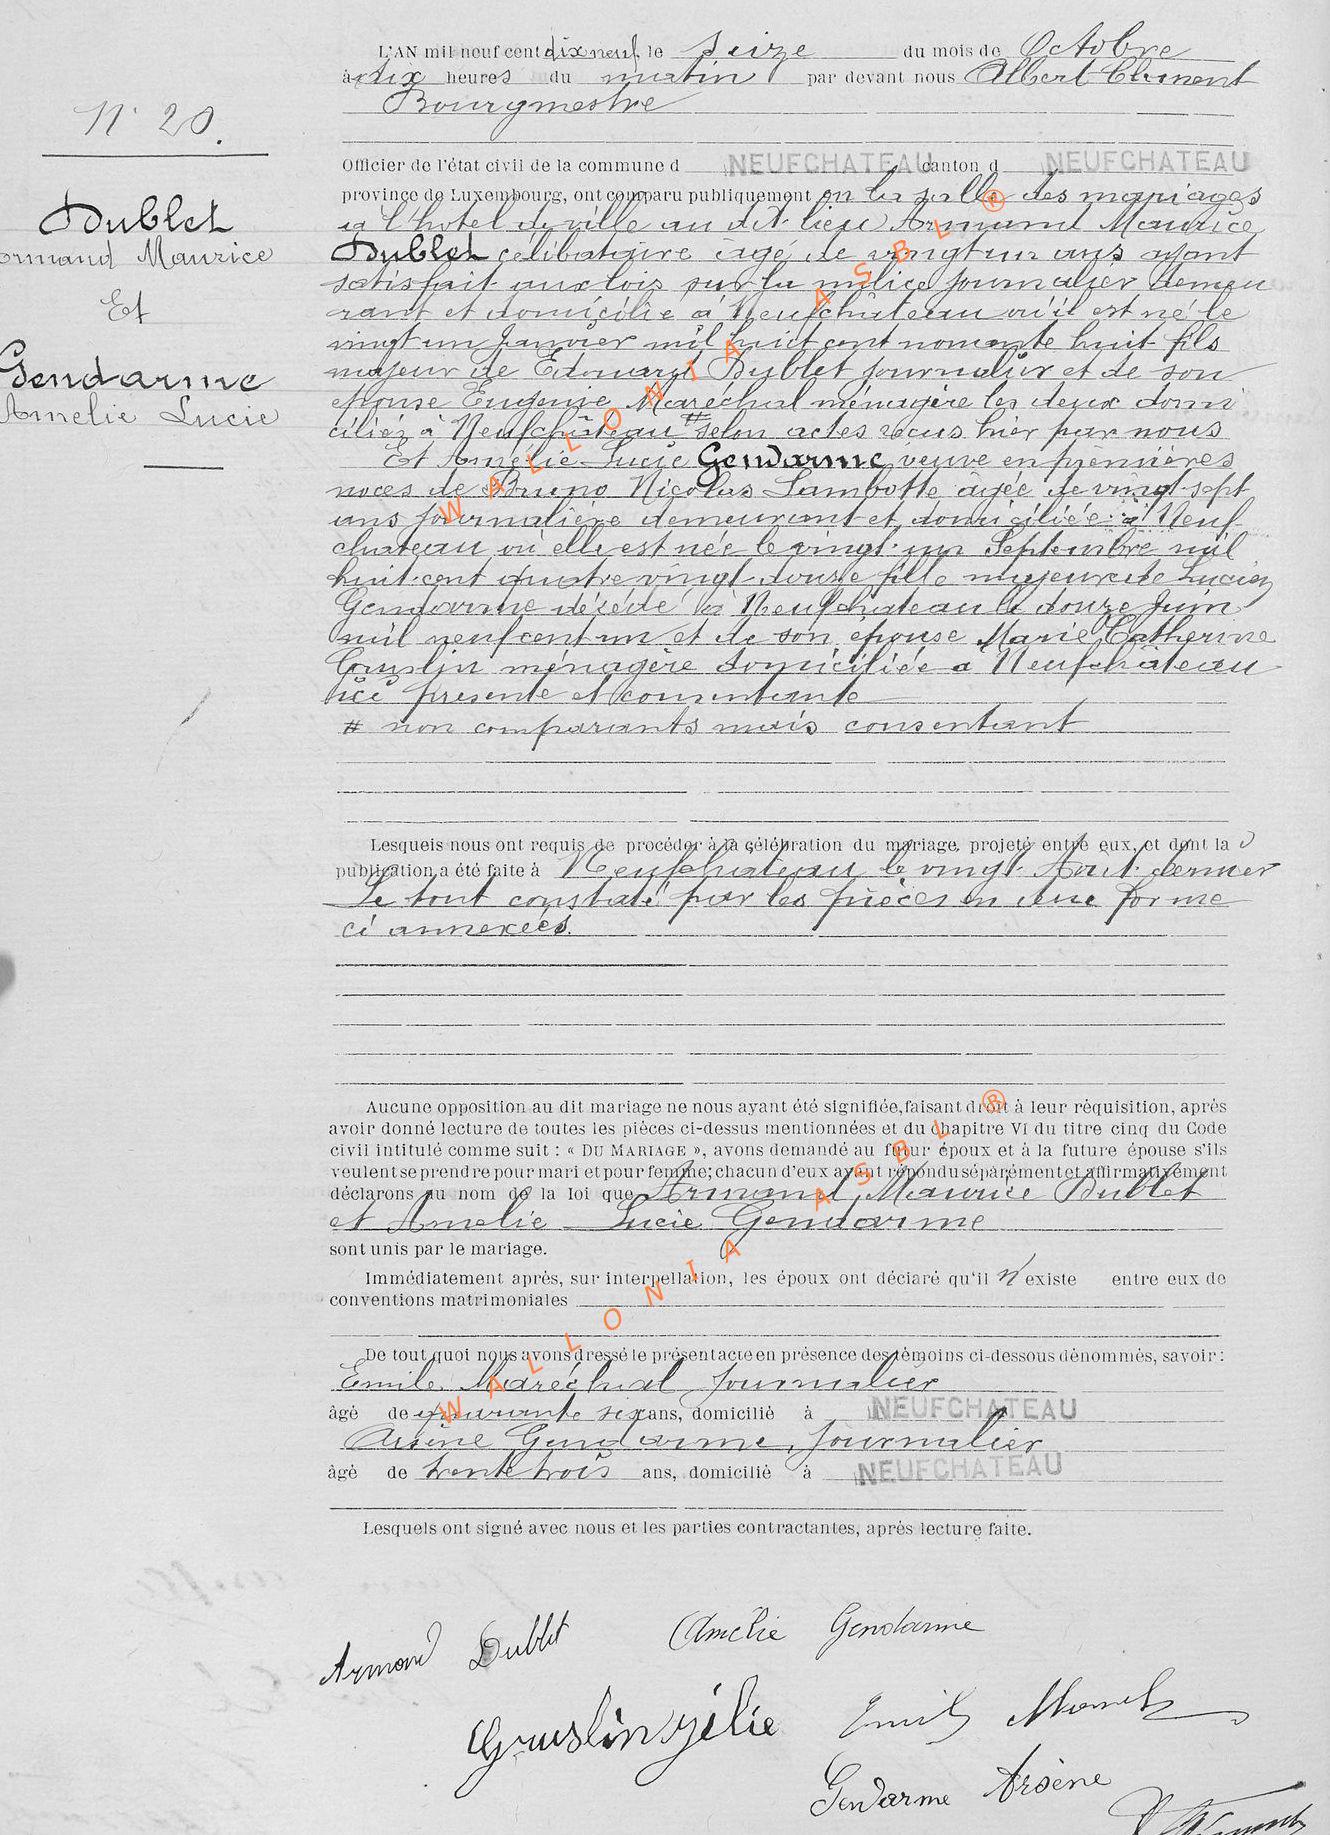 L'AN mil neuf cent dix neuf le seize du mois de Octobre
à dix heures du matin par devant nous Albert Clément
Bourgmestre
N° 20.
Officier de l'état civil de la commune d NEUFCHATEAU canton d NEUFCHATEAU
province de Luxembourg, ont comparu publiquement en la salle des mariages
à l'hôtel de ville au dit lieu Armand Maurice
Dublet célibataire âgé de vingt un ans ayant
satisfait aux lois sur la milice journalier demeu
rant et domicilié à Neufchâteau où il est né le
vingt un Janvier mil huit cent nonante huit fils
majeur de Edouard Dublet journalier et de son
épouse Eugénie Maréchal ménagère les deux domi
ciliés à Neufchâteau # selon actes reçus hier par nous
Et Amélie Lucie Gendarme veuve en premières
noces de Bruno Nicolas Lambotte âgée de vingt sept
ans journalière demeurant et domiciliée à Neuf-
chateau où elle est née le vingt-un Septembre mil
huit cent quatre vingt douze fille majeure de Lucien
Gendarme décédé à Neufchateau le douze Juin
mil neuf cent un et de son épouse Marie Catherine
Gruslin ménagère domiciliée à Neufchâteau
ici présente et consentante
# non comparants mais consentant
Dublet
Armand Maurice
Et
Gendarme
Amelie Lucie
Lesquels nous ont requis de procéder à la célébration du mariage projeté entre eux, et dont la
publication a été faite à Neufchateau le vingt Août dernier
Le tout constaté par les pièces en due forme
ci annexées.
Aucune opposition au dit mariage ne nous ayant été signifiée, faisant droit à leur réquisition, après
avoir donné lecture de toutes les pièces ci-dessus mentionnées et du chapitre VI du titre cinq du Code
civil intitulé comme suit : « DU MARIAGE », avons demandé au futur époux et à la future épouse s'ils
veulent se prendre pour mari et pour femme; chacun d'eux ayant répondu séparément et affirmativement
déclarons au nom de la loi que Armand Maurice Dublet
et Amelie Lucie Gendarme
sont unis par le mariage.
Immédiatement après, sur interpellation, les époux ont déclaré qu'il n'existe entre eux de
conventions matrimoniales
De tout quoi nous avons dressé le présent acte en présence des témoins ci-dessous dénommés, savoir :
Emile Maréchal journalier
âgé de quarante six ans, domicilié à NEUFCHATEAU
Arsène Gendarme, journalier
âgé de trente trois ans, domicilié à NEUFCHATEAU
Lesquels ont signé avec nous et les parties contractantes, après lecture faite.
Armand Dublet Amélie Gendarme
Gruslin Emile
Gendarme Arsène
WALLONIA ASBL ®
WALLONIA ASBL ®